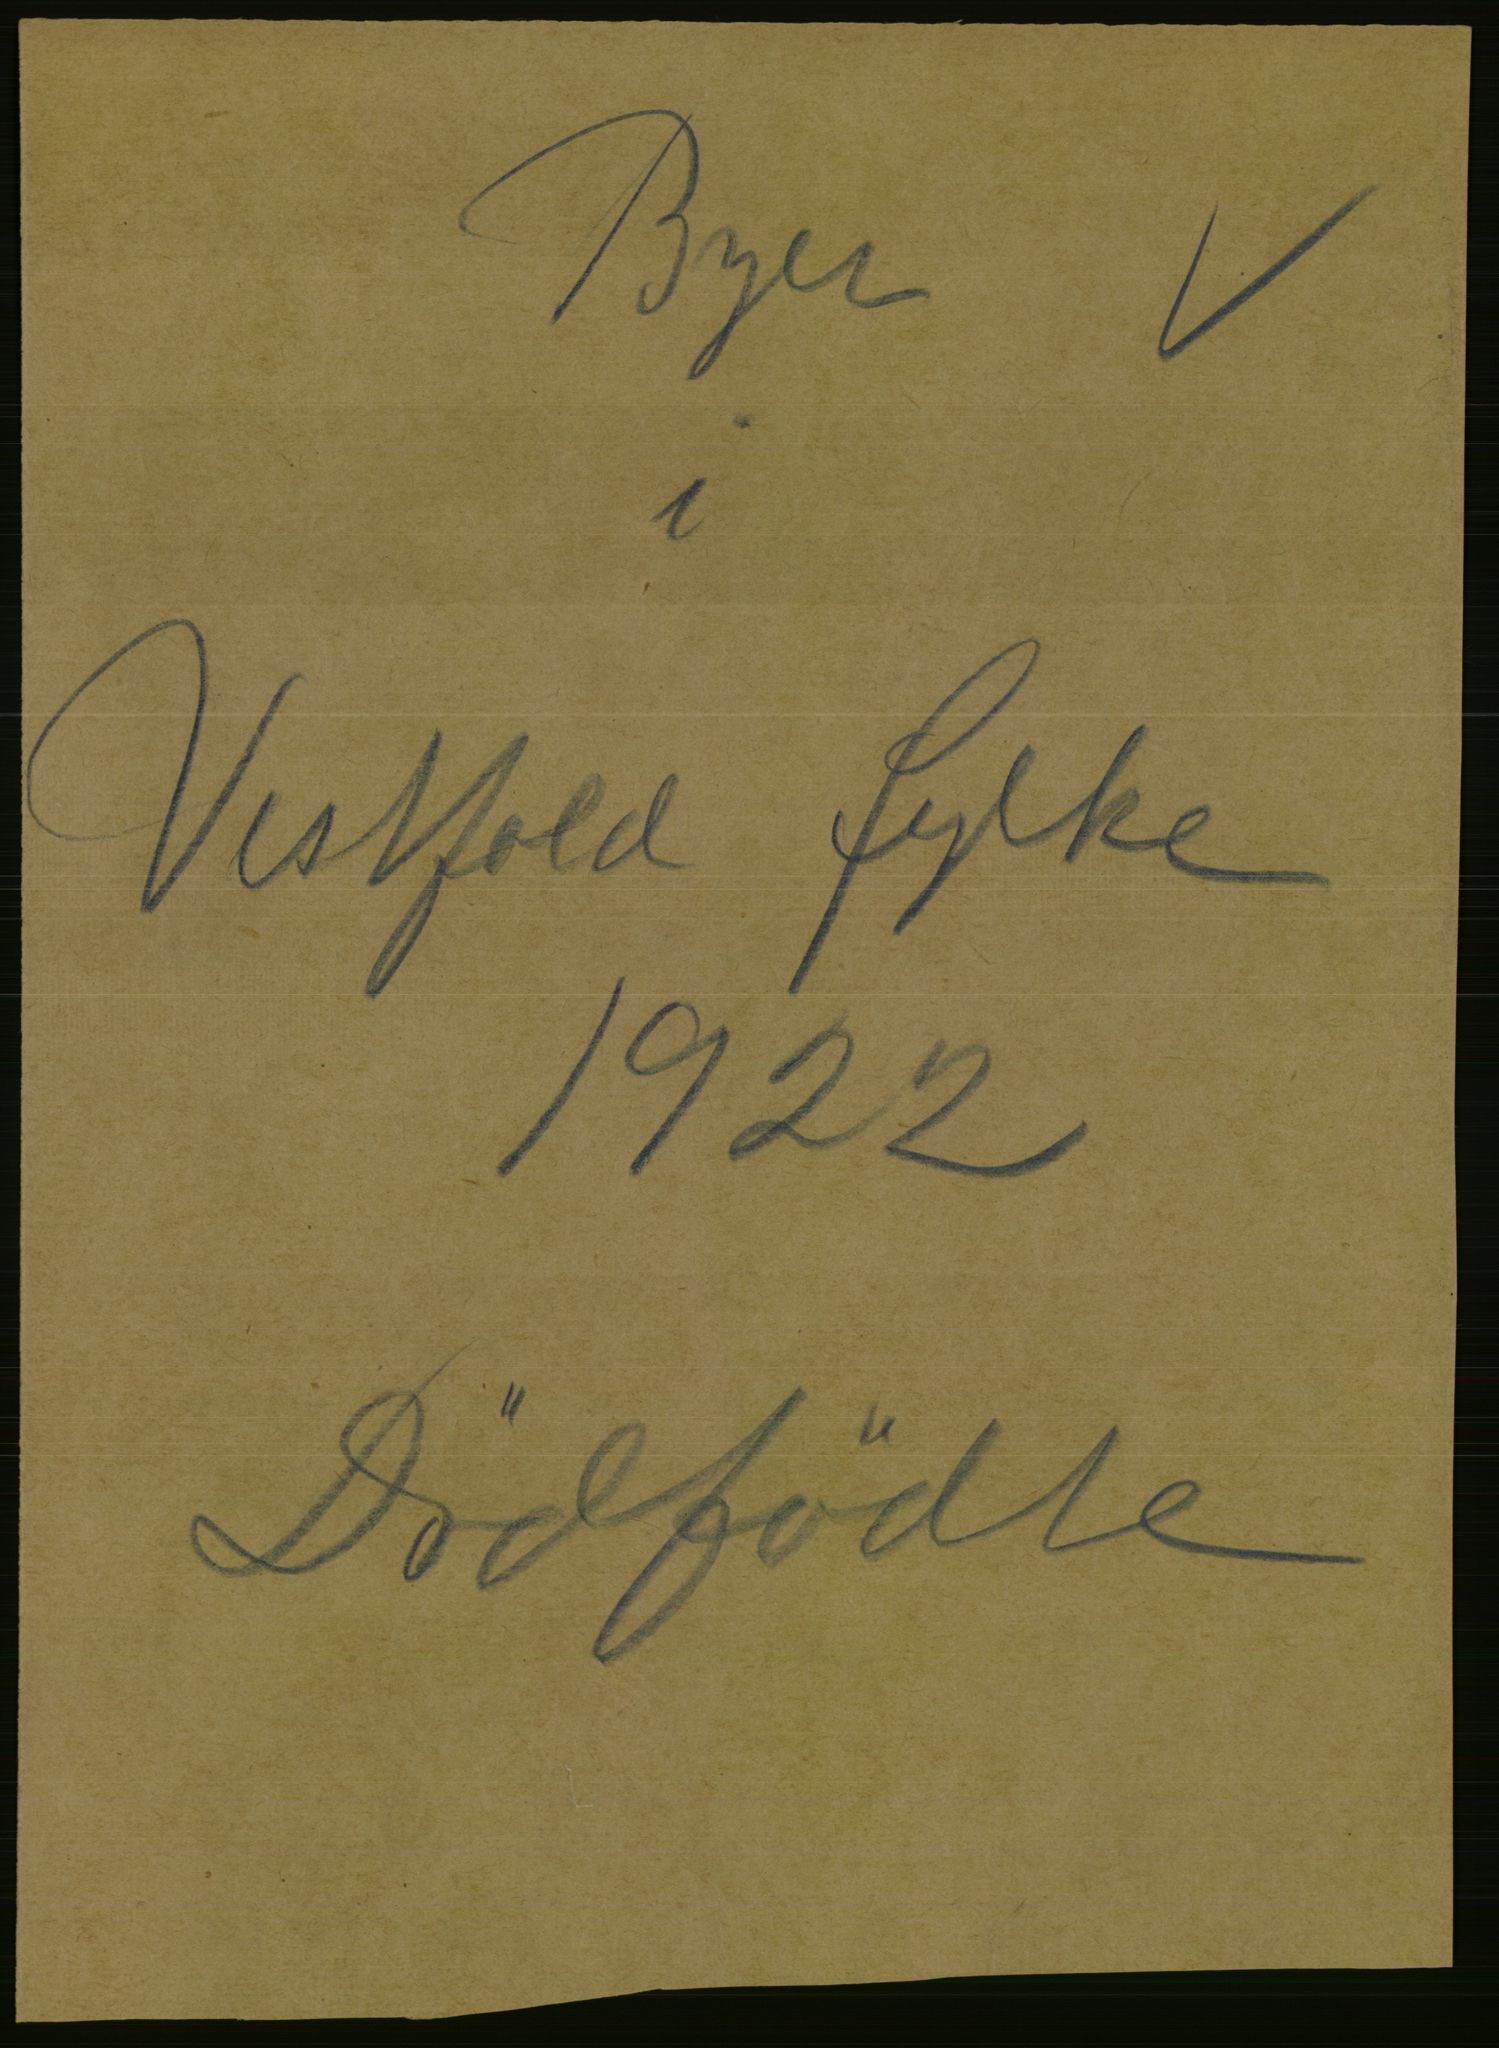 Byer V
i
Vestfold fylke
1922
Dödfödte